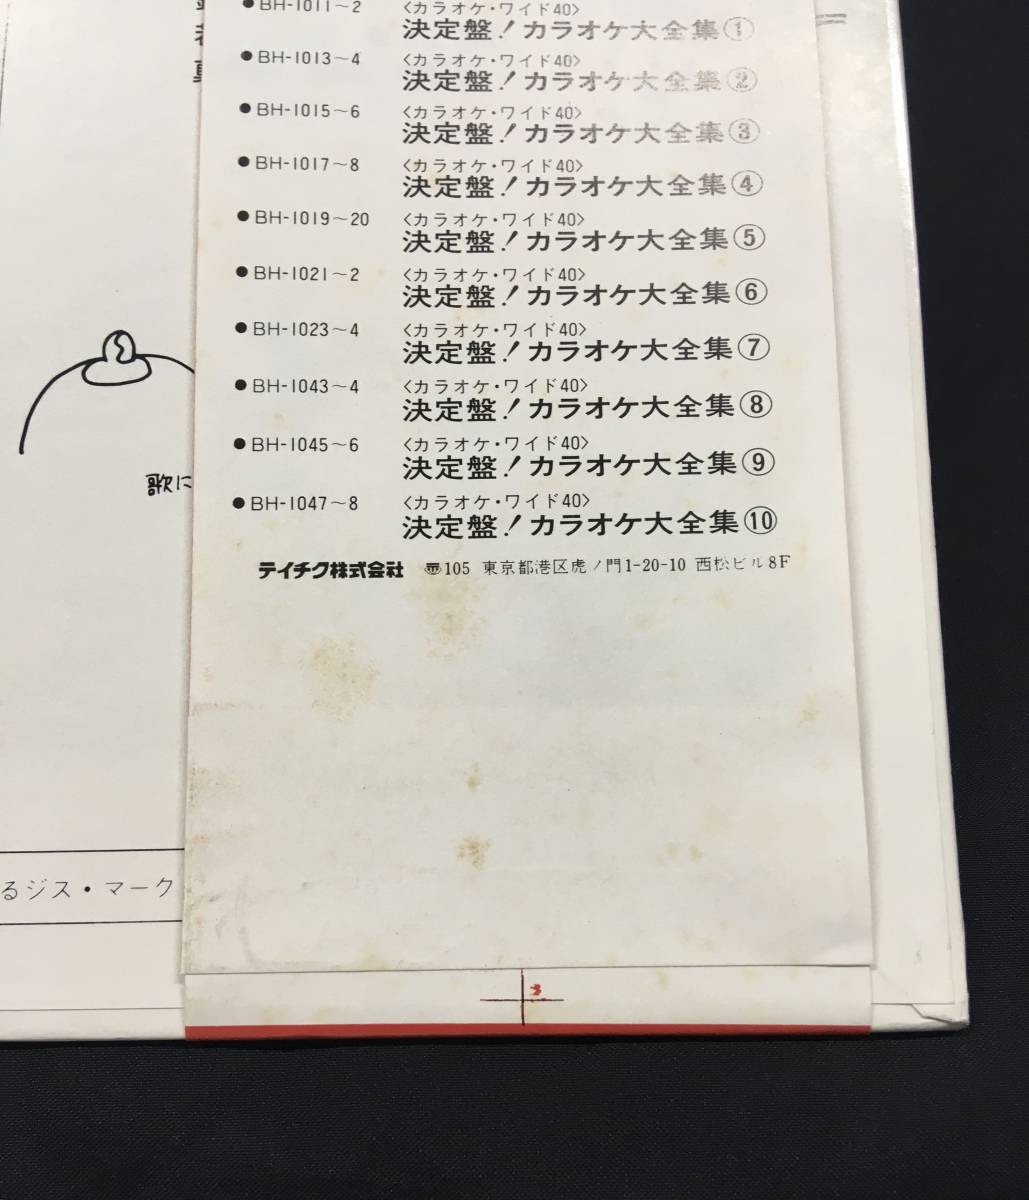 ● BH-1011~2 〈カラオケ・ワイド40〉
決定盤!カラオケ大全集①
● BH-1013~4 〈カラオケ・ワイド40〉
決定盤!カラオケ大全集②
● BH-1015~6 〈カラオケ・ワイド40〉
決定盤!カラオケ大全集③
● BH-1017~8 〈カラオケ・ワイド40〉
決定盤!カラオケ大全集④
● BH-1019~20 〈カラオケ・ワイド40〉
決定盤!カラオケ大全集⑤
● BH-1021~2 〈カラオケ・ワイド40〉
決定盤!カラオケ大全集⑥
● BH-1023~4 〈カラオケ・ワイド40〉
決定盤!カラオケ大全集⑦
● BH-1043~4 〈カラオケ・ワイド40〉
決定盤!カラオケ大全集⑧
● BH-1045~6 〈カラオケ・ワイド40〉
決定盤!カラオケ大全集⑨
● BH-1047~8 〈カラオケ・ワイド40〉
決定盤!カラオケ大全集⑩
テイチク株式会社 〠105 東京都港区虎ノ門1-20-10 西松ビル8F
歌に
るジス・マーク
3